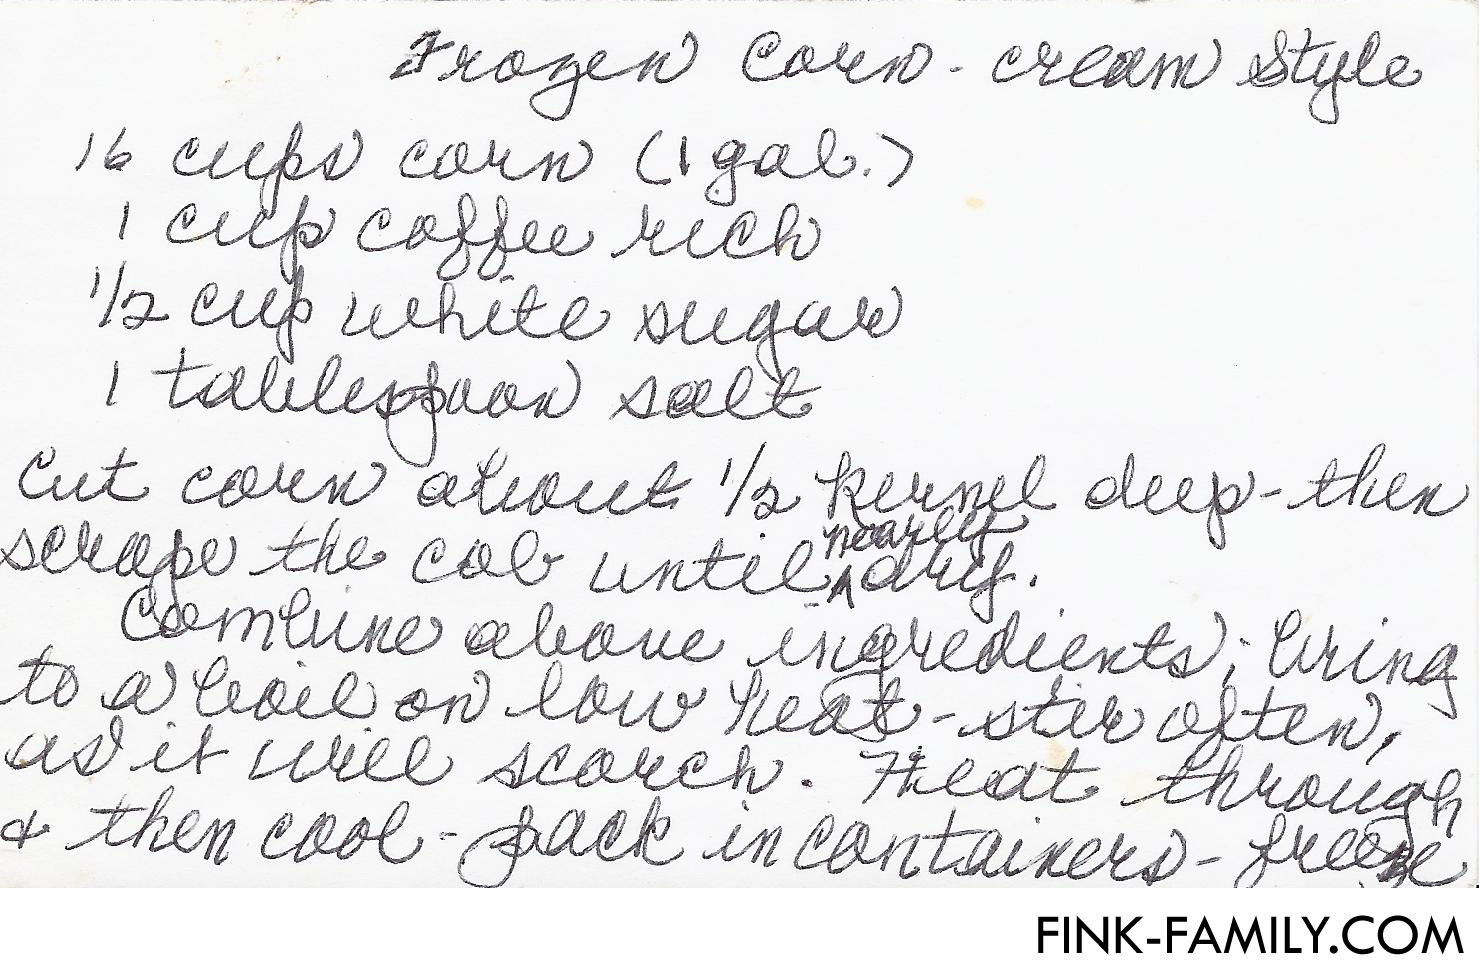 Frozen Corn - cream style
16 cups corn (1 gal.)
1 cup coffee rich
1/2 cup white sugar
1 tablespoon salt
Cut corn about 1/2 kernel deep - then
scrape the cob until nearly dry.
Combine above ingredients; bring
to a boil on low heat - stir often,
as it will scorch. Heat through
& then cool - pack in containers - freeze
FINK-FAMILY.COM